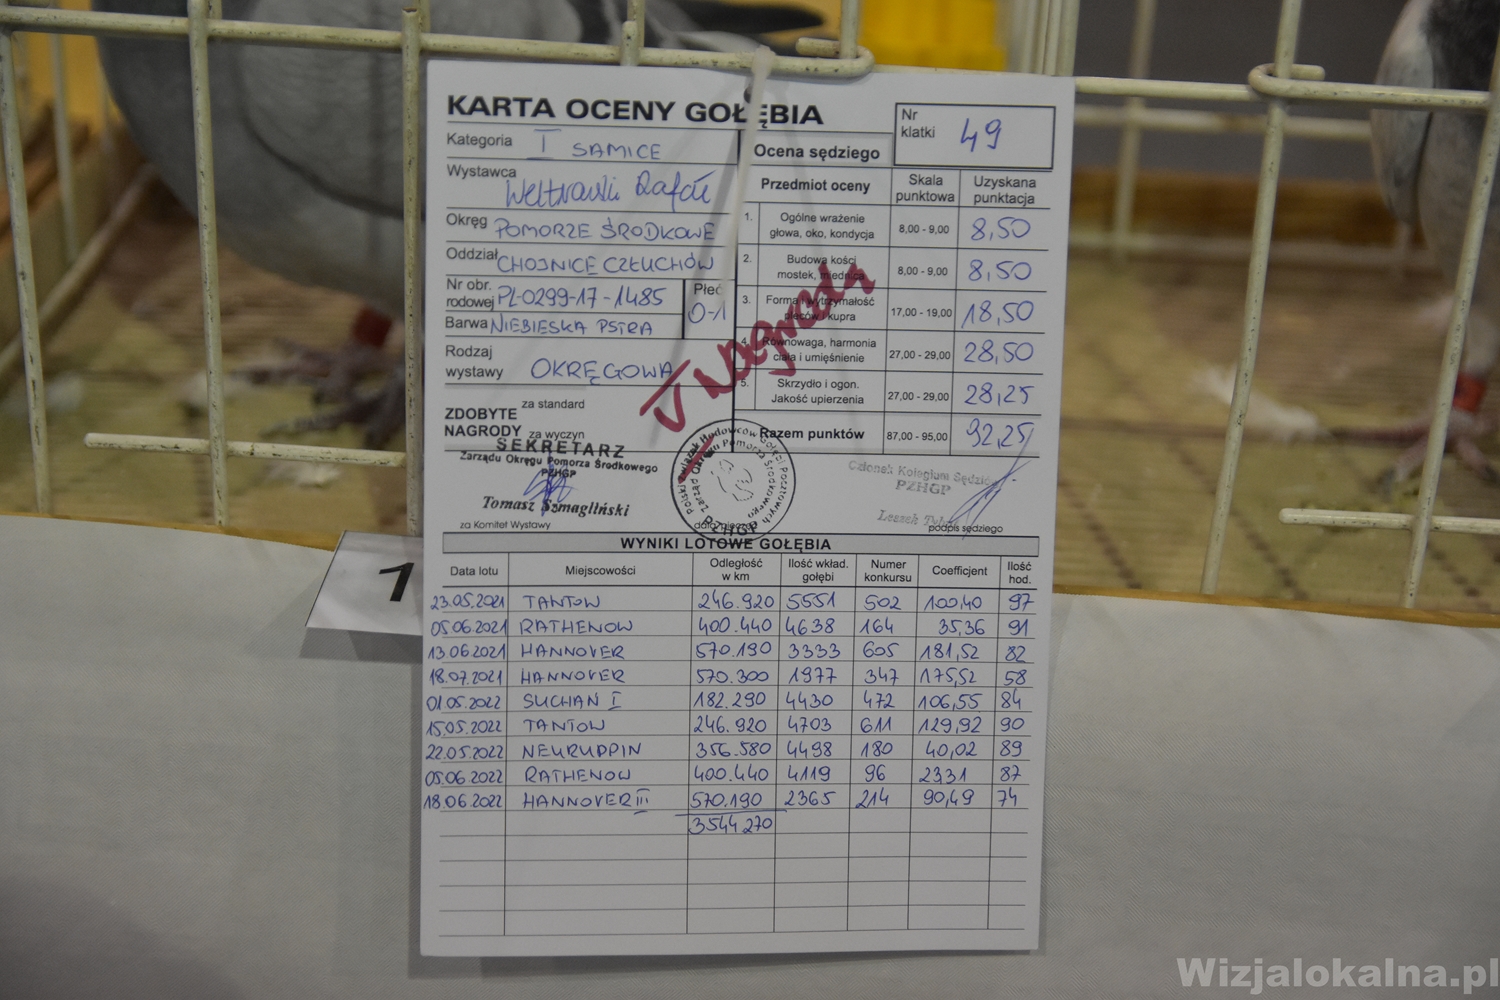 KARTA OCENY GOŁĘBIA
Nr klatki 49
Kategoria I SAMICE
Ocena sędziego
Wystawca Weltrowski Rafał
Przedmiot oceny Skala punktowa Uzyskana punktacja
Okręg POMORZE ŚRODKOWE
1. Ogólne wrażenie głowa, oko, kondycja 8,00 - 9,00 8,50
Oddział CHOJNICE CZŁUCHÓW
2. Budowa kości mostek, miednica 8,00 - 9,00 8,50
Nr obr. rodowej PL-0299-17-1485 Płeć 0-1
3. Forma i wytrzymałość pleców i kupra 17,00 - 19,00 18,50
Barwa NIEBIESKA PSTRA
4. Równowaga, harmonia ciała i umięśnienie 27,00 - 29,00 28,50
Rodzaj wystawy OKRĘGOWA
5. Skrzydło i ogon. Jakość upierzenia 27,00 - 29,00 28,25
V Nagroda
ZDOBYTE NAGRODY za standard
za wyczyn
Razem punktów 87,00 - 95,00 92,25
SEKRETARZ
Zarządu Okręgu Pomorza Środkowego
PZHGP
Tomasz Szmagliński
za Komitet Wystawy
Polski Związek Hodowców Gołębi Pocztowych
Zarząd Okręgu Pomorza Środkowego
PZHGP
Członek Kolegium Sędziów
PZHGP
Leszek
podpis sędziego
WYNIKI LOTOWE GOŁĘBIA
Data lotu Miejscowości Odległość w km Ilość wkład. gołębi Numer konkursu Coefficjent Ilość hod.
23.05.2021 TANTOW 246.920 5551 502 100,40 97
05.06.2021 RATHENOW 400.440 4638 164 35,36 91
13.06.2021 HANNOVER 570.190 3333 605 181,52 82
18.07.2021 HANNOVER 570.300 1977 347 175,52 58
01.05.2022 SUCHAŃ I 182.290 4430 472 106,55 84
15.05.2022 TANTOW 246.920 4703 611 129,92 90
22.05.2022 NEURUPPIN 356.580 4498 180 40,02 89
05.06.2022 RATHENOW 400.440 4119 96 23,31 87
18.06.2022 HANNOVER III 570.190 2365 214 90,49 74
3544.270
1
Wizjalokalna.pl